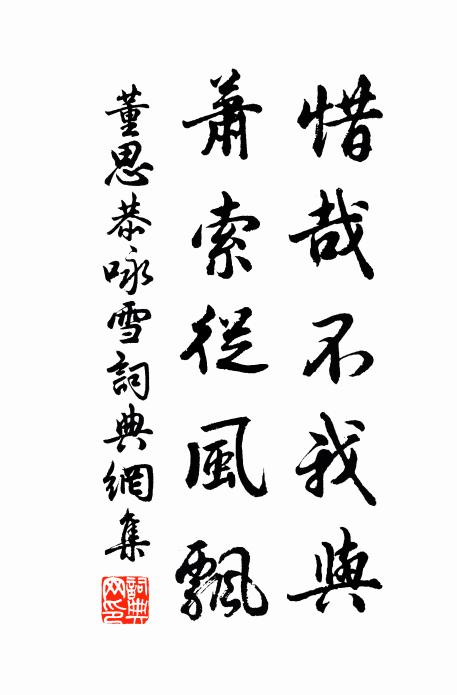 惜哉不我與
蕭索從風飄
董思恭咏雪詞典網集
詞典網印